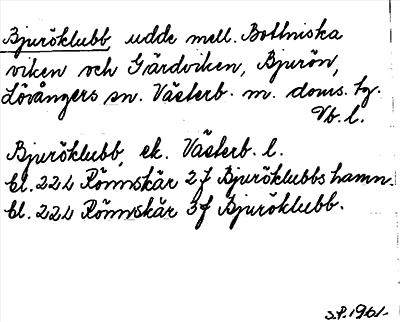 Bjuröklubb, udde mell. Bottniska
viken och Gärdviken, Bjurön,
Lövångers sn. Västerb. m. doms. tg.
Vb. l.
Bjuröklubb, ek. Västerb. l.
bl. 22L Rönnskär 2f Bjuröklubbs hamn.
bl. 22L Rönnskär 3f Bjuröklubb.
S.P. 1961.